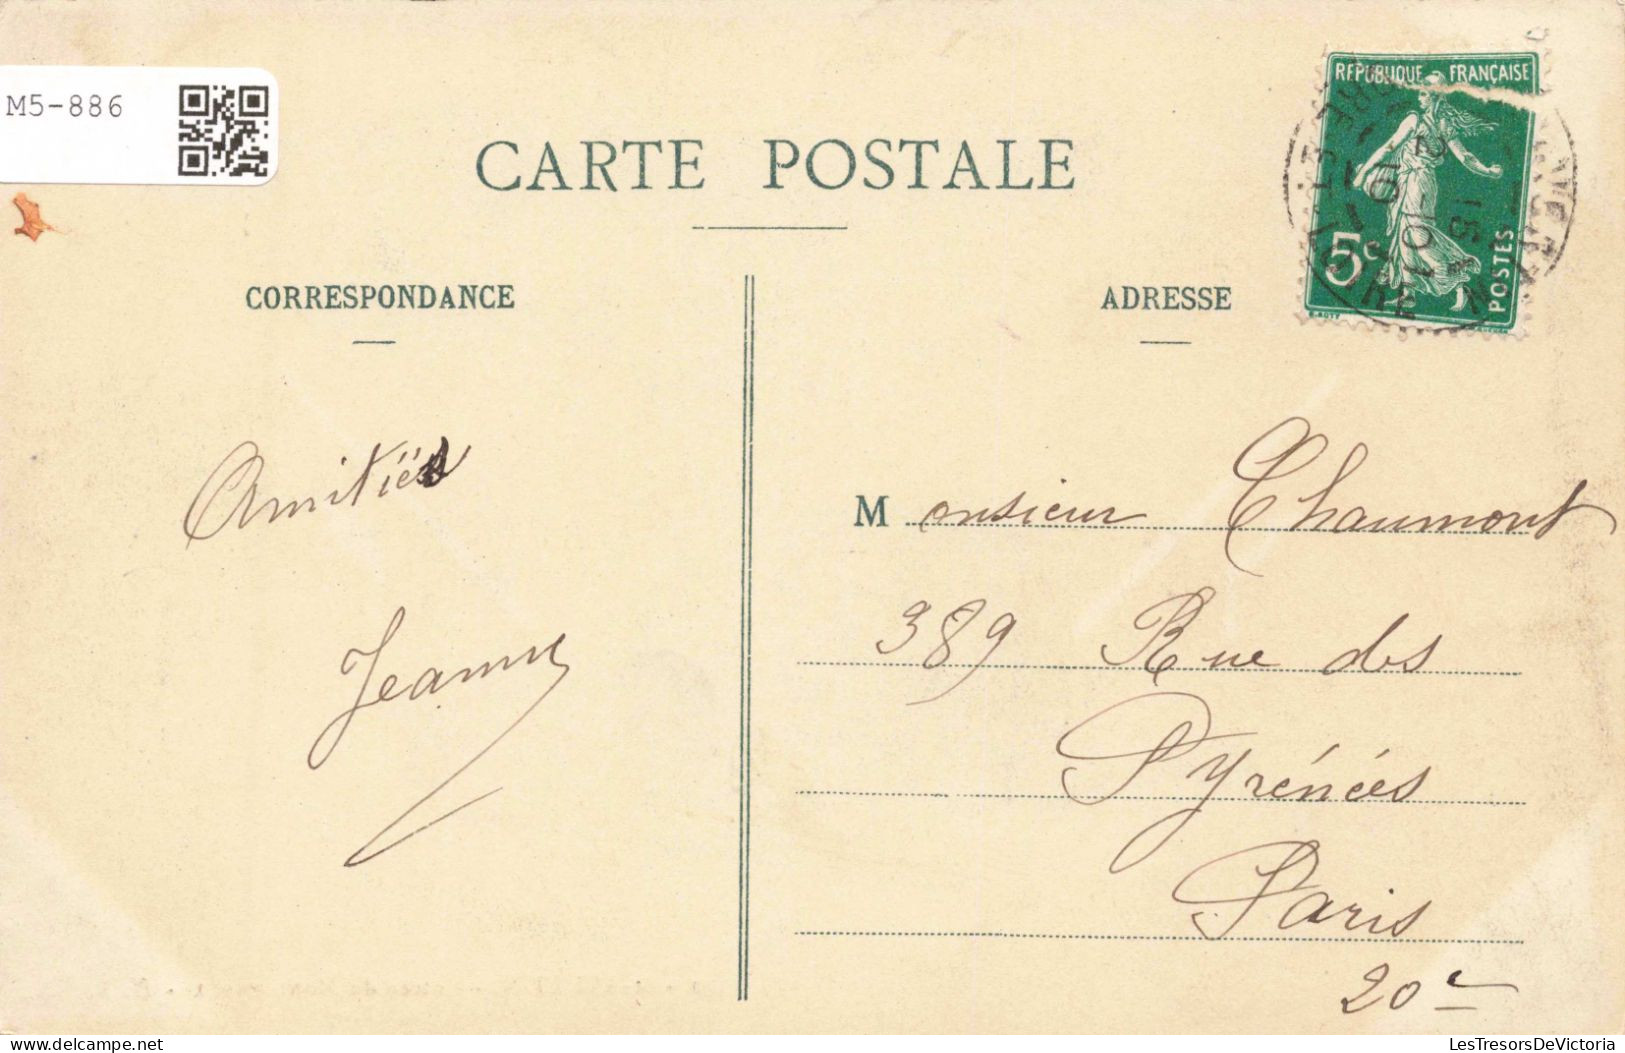 M5-886
CARTE POSTALE
CORRESPONDANCE
ADRESSE
REPUBLIQUE FRANÇAISE
5c
POSTES
Amitiés
Jeanne
Monsieur Chaumont
389 Rue des
Pyrénées
Paris
20e
delcampe.net
LesTresorsDeVictoria